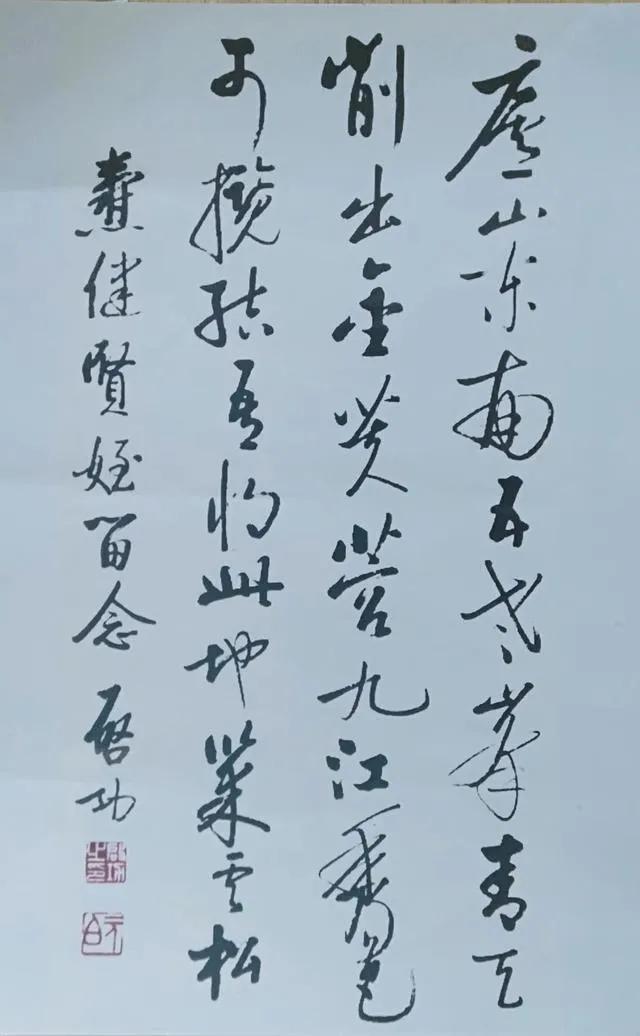 廬山东南五老峯青天
削出金芙蓉九江秀色
可攬结吾将此地巢云松
焘健賢姪留念 啓功
啓功之印
元白